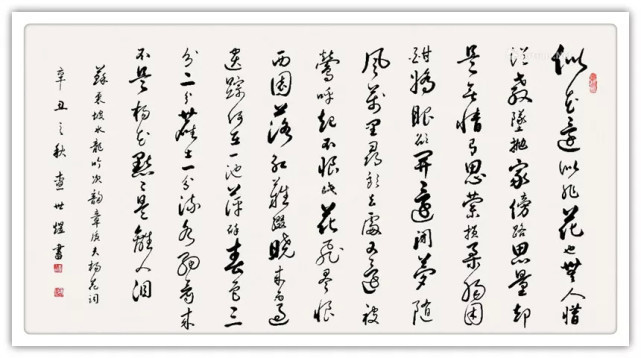 似花還似非花也無人惜
從教墜拋家傍路思量却
是無情有思縈損柔腸困
酣嬌眼欲開還閉夢隨
風萬里尋郎去處又還被
鶯呼起不恨此花飛盡恨
西園落紅難綴曉來雨過
遺踪何在一池萍碎春色三
分二分塵土一分流水細看來
不是楊花點〻是離人淚
蘇東坡水龍吟次韻章質夫楊花詞
辛丑之秋查世煜書